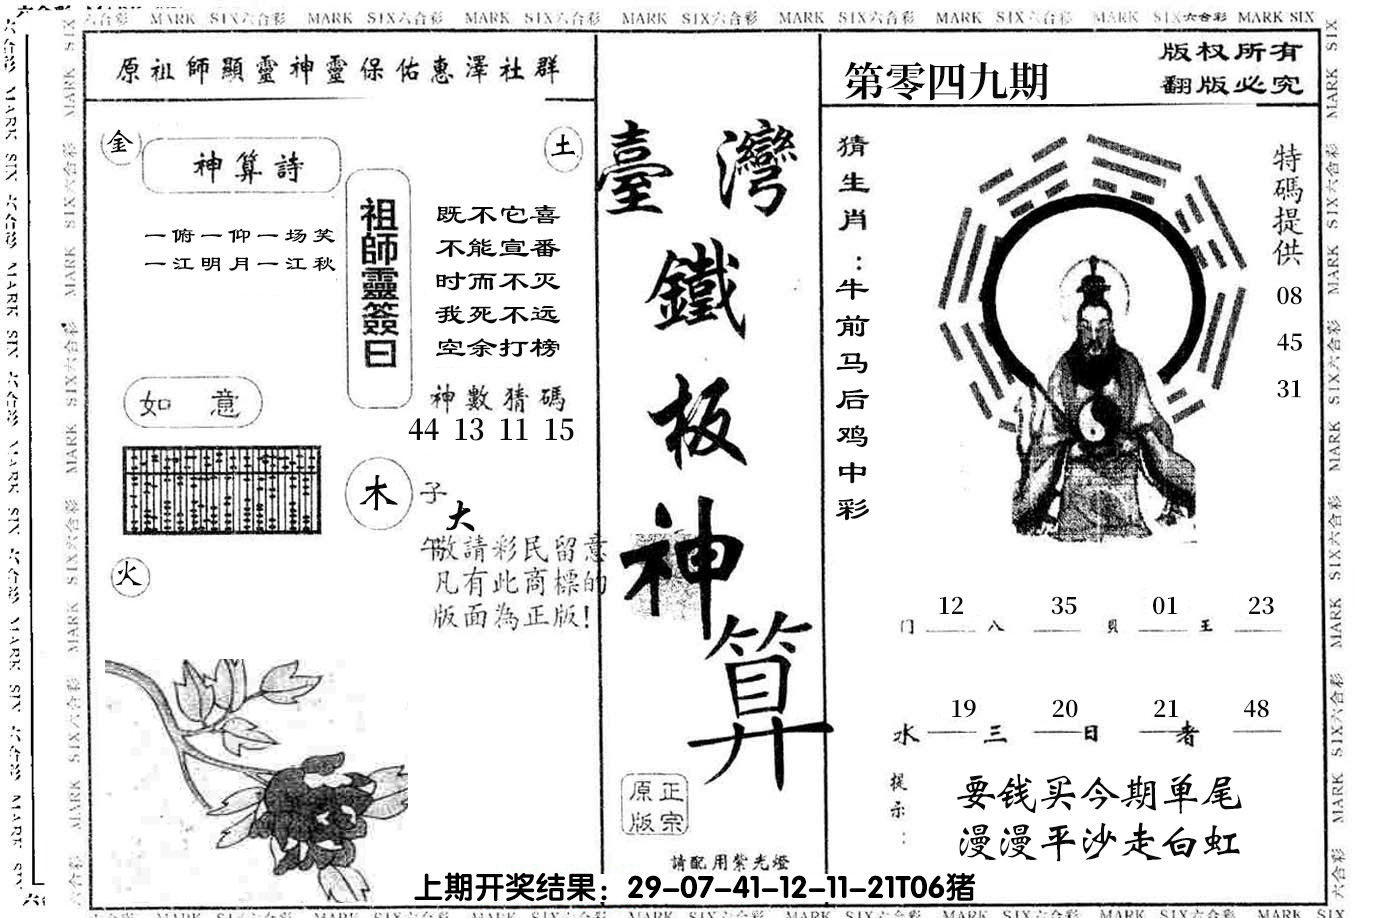 原祖師顯靈神靈保佑惠澤社群
金
神算詩
土
一俯一仰一场笑
一江明月一江秋
祖師靈簽曰
既不它喜
不能宣番
时而不灭
我死不远
空余打榜
神數猜碼
44 13 11 15
如 意
木
子
大
午
敬請彩民留意
凡有此商標的
版面為正版!
火
臺灣
鐵
板
神
算
正宗
原版
請配用紫光燈
第零四九期
版权所有
翻版必究
猜生肖:牛前马后鸡中彩
特碼提供
08
45
31
12 35 01 23
门 八 貝 王
19 20 21 48
水 三 日 者
提示:
要钱买今期单尾
漫漫平沙走白虹
上期开奖结果：29-07-41-12-11-21T06猪
MARK SIX六合彩 MARK SIX六合彩 MARK SIX六合彩 MARK SIX六合彩 MARK SIX六合彩 MARK SIX六合彩 MARK SIX六合彩 MARK SIX